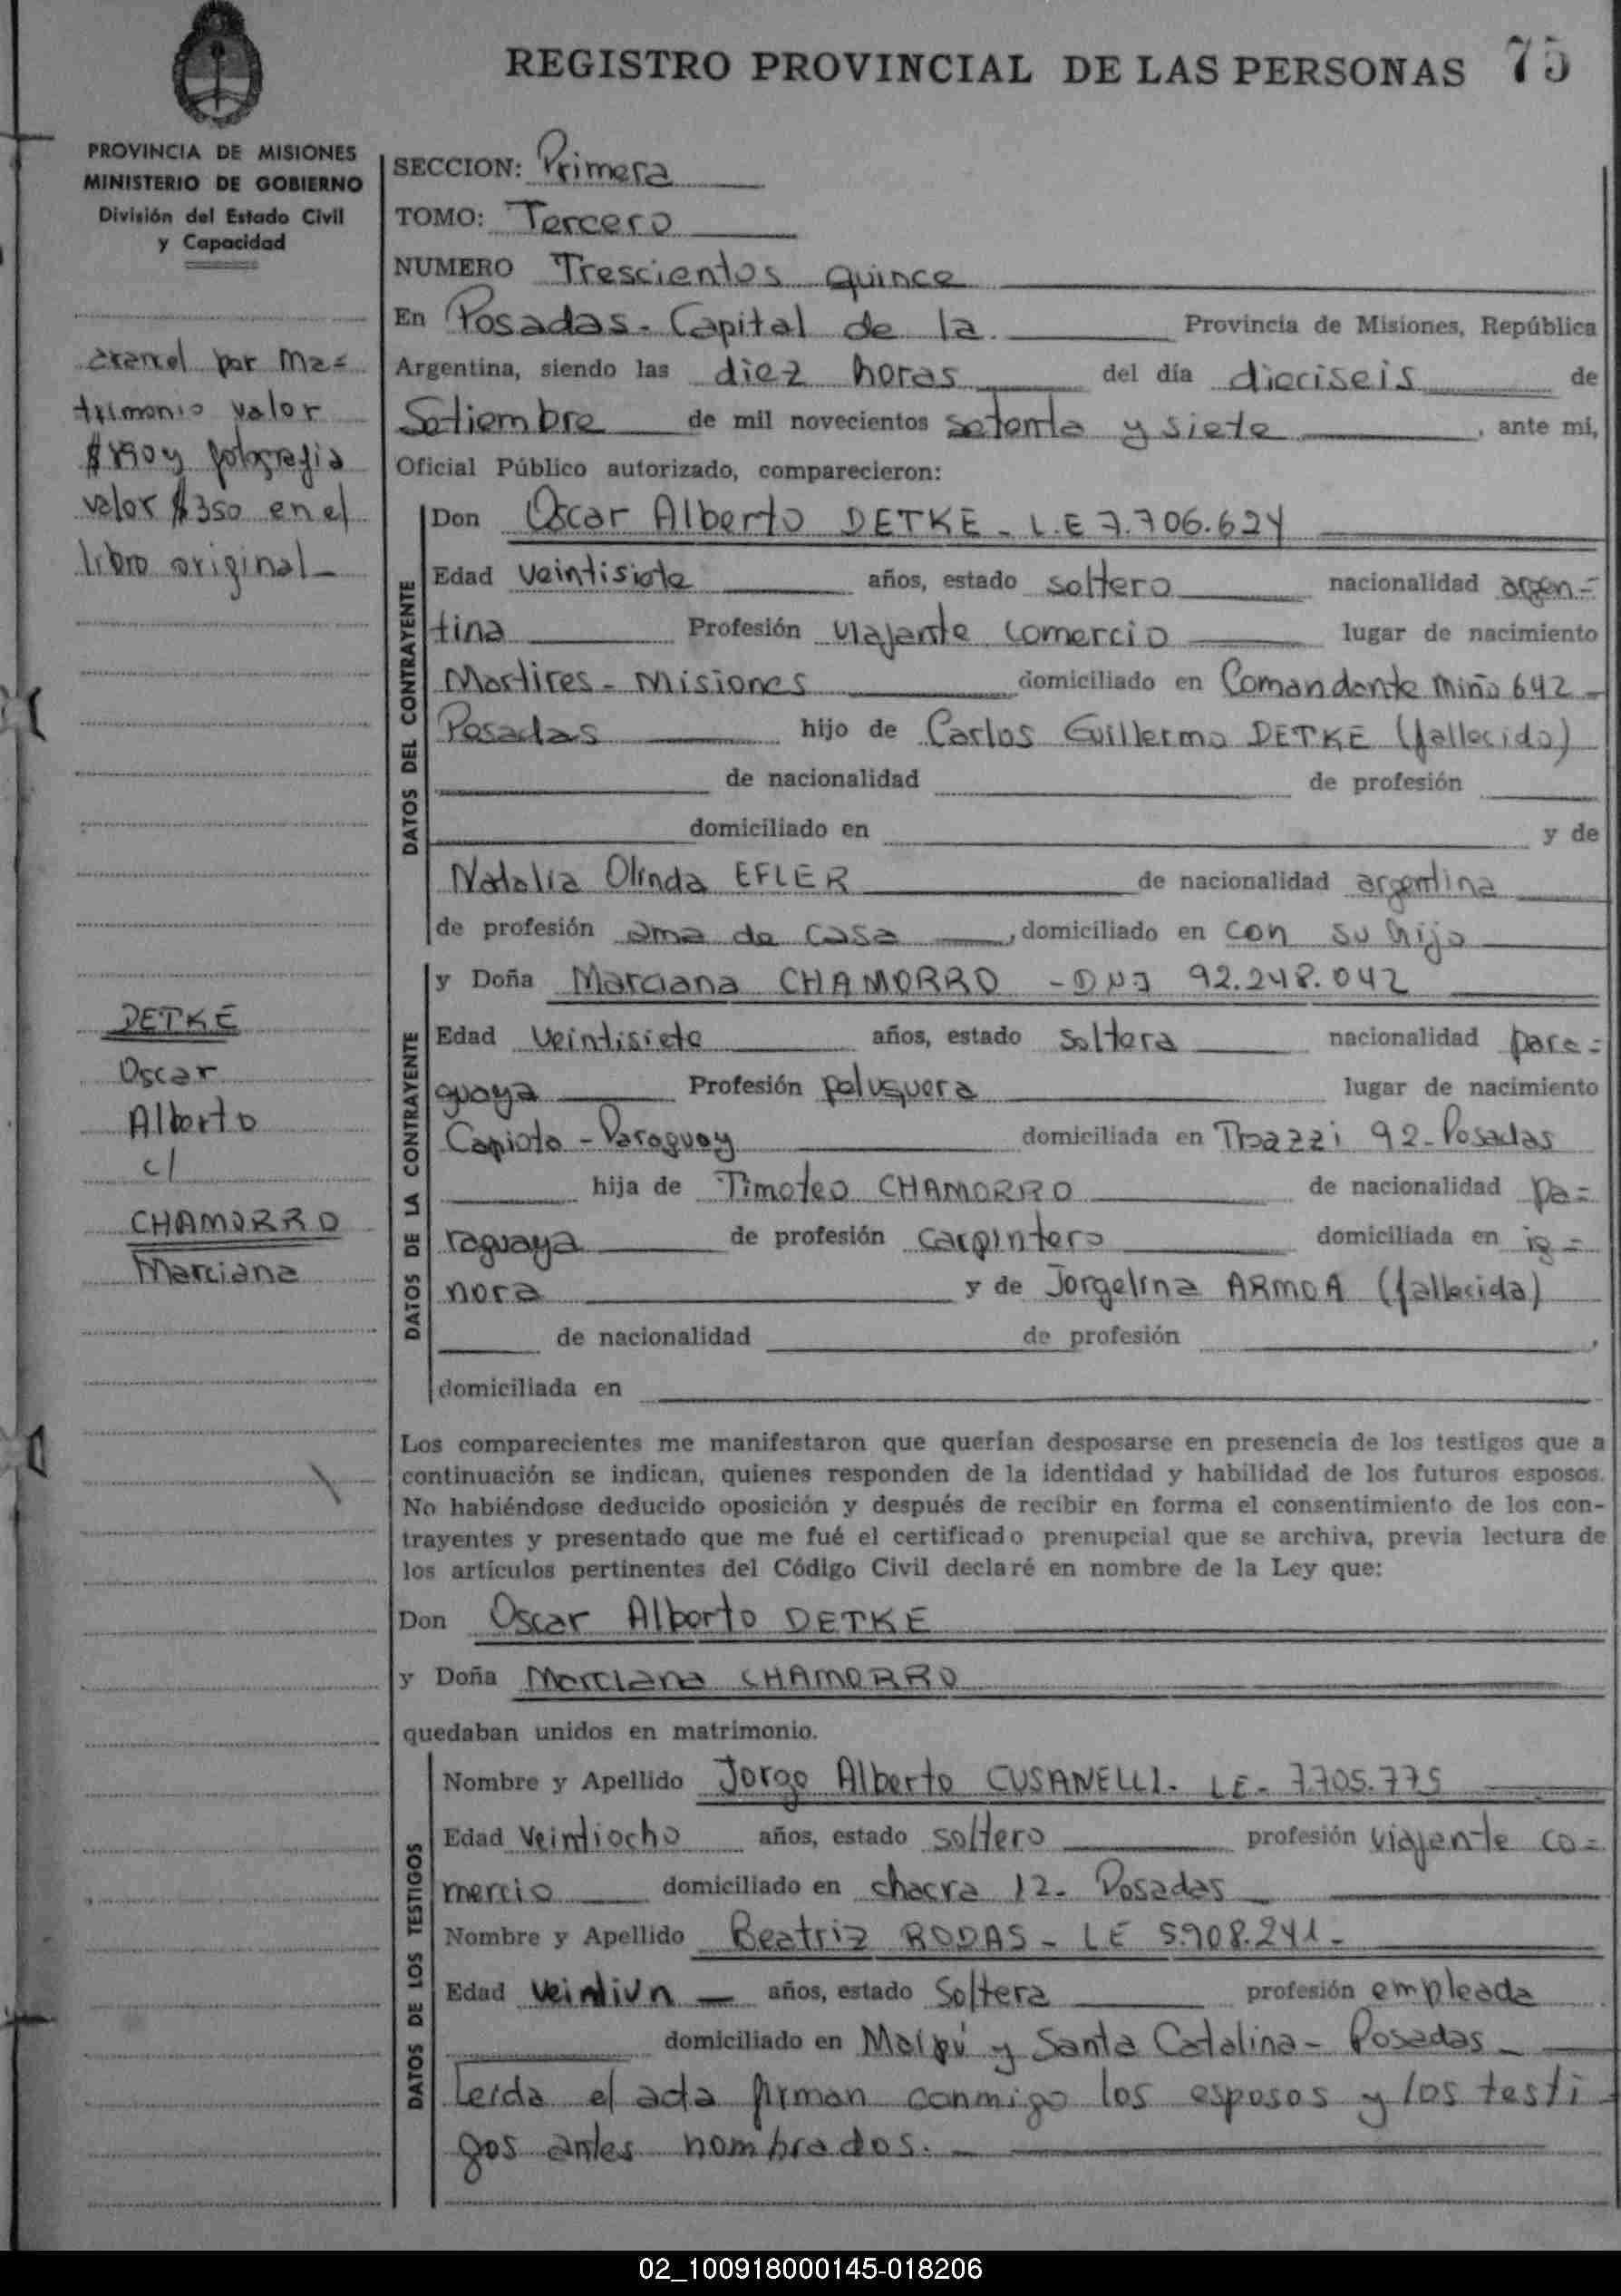 REGISTRO PROVINCIAL DE LAS PERSONAS 75
PROVINCIA DE MISIONES
MINISTERIO DE GOBIERNO
División del Estado Civil
y Capacidad
por ma=
trimonio valor
fotografia
valor $350 en el
libro original_
DETKE
Oscar
Alberto
c/
CHAMORRO
Marciana
SECCION: Primera
TOMO: Tercero
NUMERO Trescientos quince
En Posadas - Capital de la Provincia de Misiones, República
Argentina, siendo las diez horas del día dieciseis de
Setiembre de mil novecientos setenta y siete, ante mi,
Oficial Público autorizado, comparecieron:
DATOS DEL CONTRAYENTE
Don Oscar Alberto DETKE - L.E 7.706.624
Edad veintisiete años, estado soltero nacionalidad argen=
tina Profesión viajante comercio lugar de nacimiento
Martires - Misiones domiciliado en Comandante Miño 642 -
Posadas hijo de Carlos Guillermo DETKE (fallecido)
de nacionalidad de profesión
domiciliado en y de
Natalia Olinda EFLER de nacionalidad argentina
de profesión ama de casa, domiciliado en con su hijo
DATOS DE LA CONTRAYENTE
y Doña Marciana CHAMORRO - DNI 92.248.042
Edad veintisiete años, estado soltera nacionalidad para=
guaya Profesión peluquera lugar de nacimiento
- Paraguay domiciliada en 92 - Posadas
hija de Timoteo CHAMORRO de nacionalidad pa=
raguaya de profesión carpintero domiciliada en ig=
nora y de Jorgelina ARMOA (fallecida)
de nacionalidad de profesión
domiciliada en
Los comparecientes me manifestaron que querían desposarse en presencia de los testigos que a
continuación se indican, quienes responden de la identidad y habilidad de los futuros esposos.
No habiéndose deducido oposición y después de recibir en forma el consentimiento de los con-
trayentes y presentado que me fué el certificado prenupcial que se archiva, previa lectura de
los artículos pertinentes del Código Civil declaré en nombre de la Ley que:
Don Oscar Alberto DETKE
y Doña Marciana CHAMORRO
quedaban unidos en matrimonio.
DATOS DE LOS TESTIGOS
Nombre y Apellido Jorge Alberto CUSANELLI - LE - 7.705.775
Edad Veintiocho años, estado soltero profesión viajante co=
mercio domiciliado en chacra 12 - Posadas
Nombre y Apellido Beatriz RODAS - LE 5.908.241 -
Edad veintiun años, estado soltera profesión empleada
domiciliado en Maipú y Santa Catalina - Posadas -
Leida el acta firman conmigo los esposos y los testi
gos antes nombrados. -
02_100918000145-018206